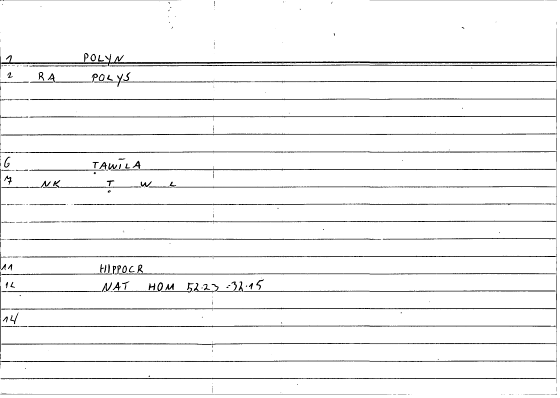 1 POLYN
2 RA POLYS
6 ṬAWĪLA
7 NK Ṭ W L
11 HIPPOCR
12 NAT HOM 52.23 - 32.15
14